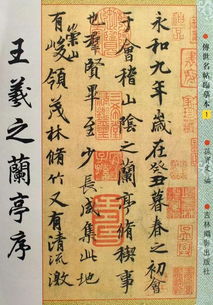 傳世名帖臨摹本 1
王羲之蘭亭序
永和九年歲在癸丑暮春之初會
于會稽山陰之蘭亭脩稧事
也羣賢畢至少長咸集此地
有崇山峻領茂林脩竹又有清流激
吉林攝影出版社